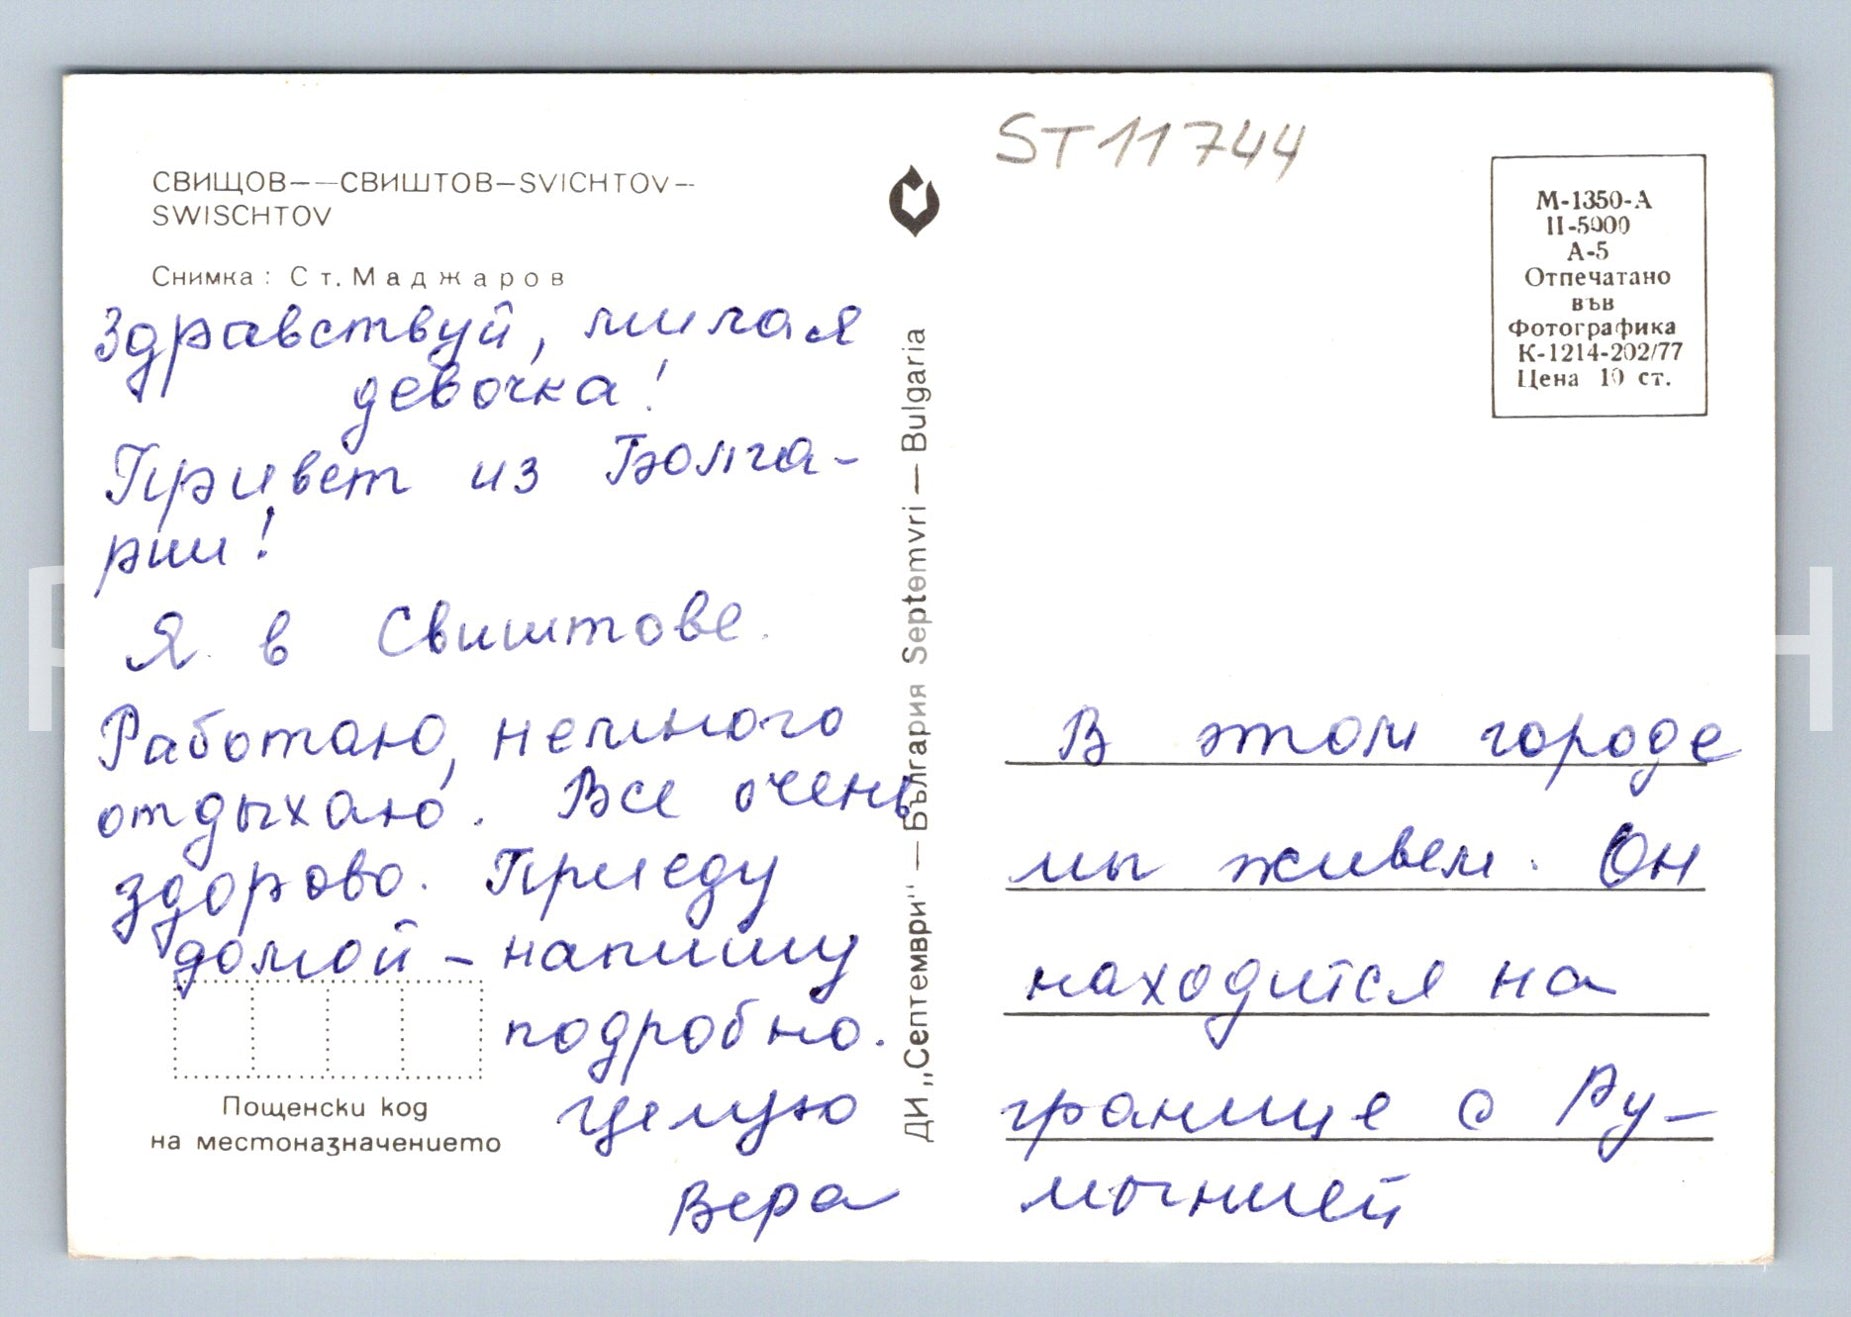 СВИЩОВ-–-СВИШТОВ–SVICHTOV–
SWISCHTOV
Снимка: Ст. Маджаров
Здравствуй, милая
девочка!
Привет из Болга-
рии!
Я в Свиштове.
Работаю, немного
отдыхаю. Все очень
здорово. Приеду
домой – напишу
подробно.
Целую
Вера
Пощенски код
на местоназначението
ДИ „Септември" — България Septemvri — Bulgaria
ST11744
М-1350-А
II-5000
А-5
Отпечатано
във
Фотографика
К-1214-202/77
Цена 10 ст.
В этом городе
мы живем. Он
находится на
границе с Ру-
мынией